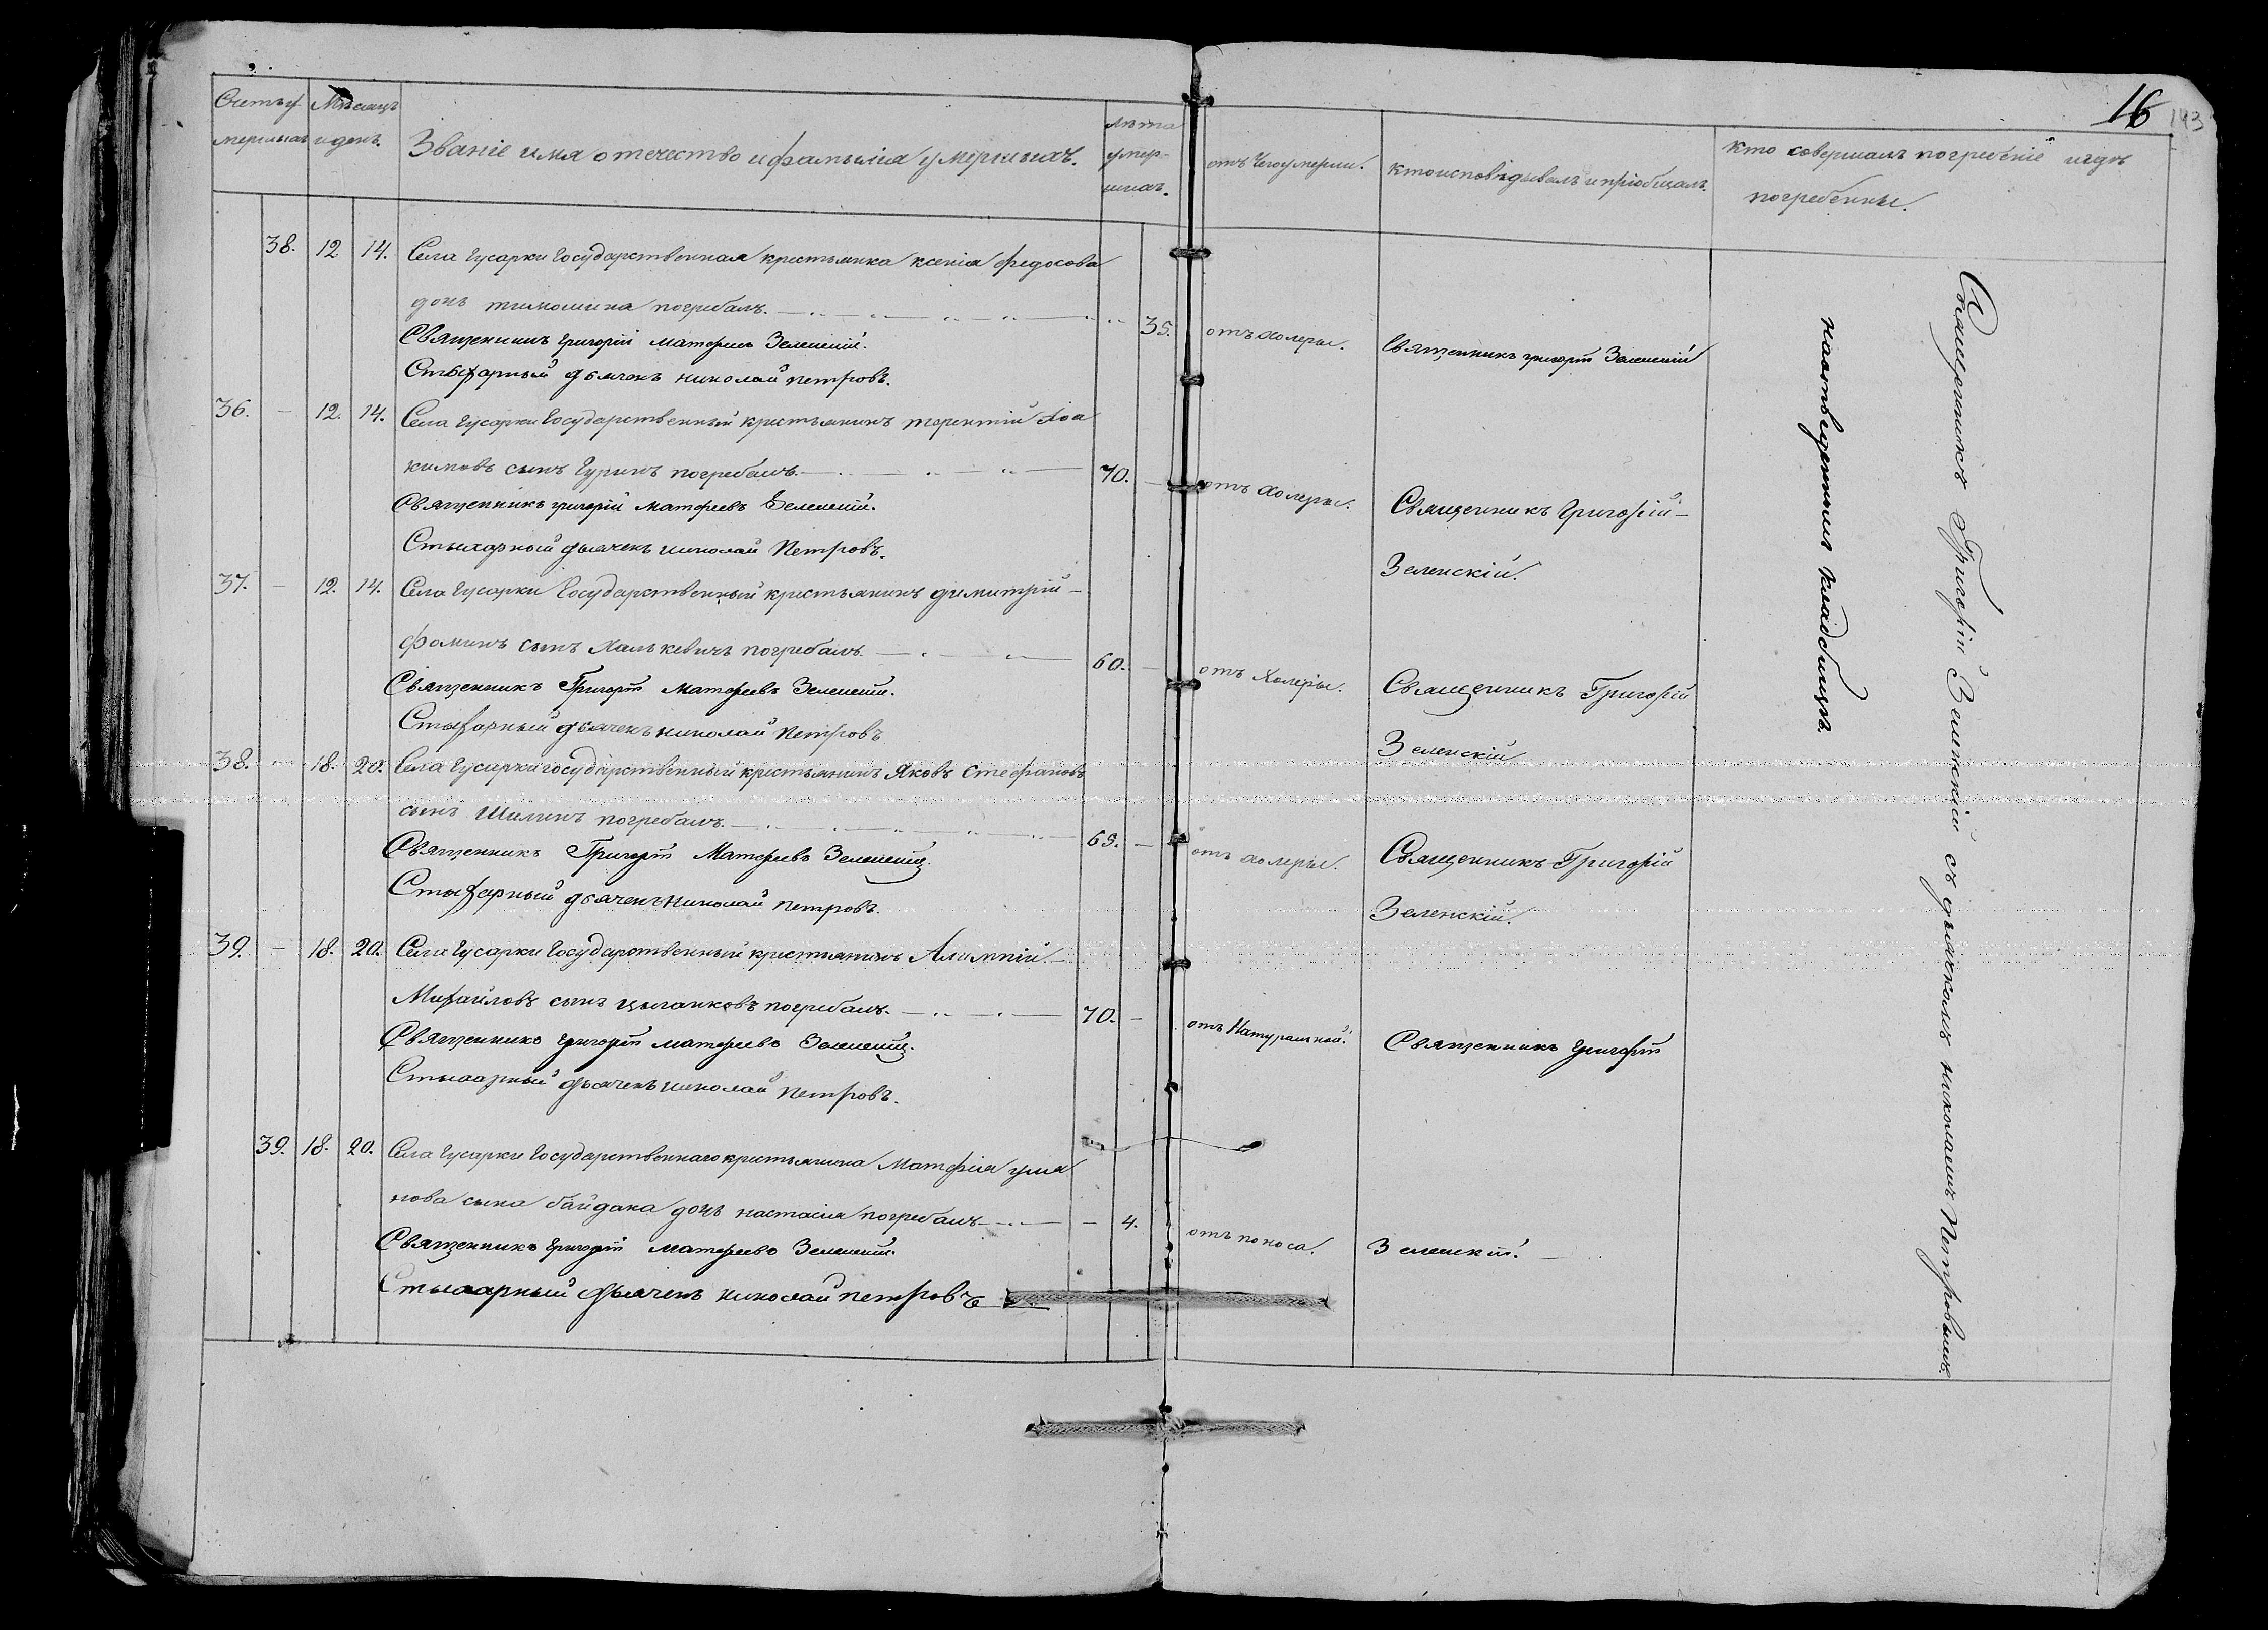 16
143
Счетъ у
мершихъ
Мѣсяцъ
и день.
Званіе имя отечество и фамылія умершихъ.
лѣта
умер-
шихъ.
отъ Чего умерли.
кто исповѣдывалъ и пріобщалъ.
кто совершалъ погребеніе и гдѣ
погребенны.
38. 12 14. Села Гусарки Государственная крестьянка ксенія федосова
дочь тимошина погребалъ. 35. отъ холеры.
Священникъ григорій матфеевъ Зеленскій. Священникъ григорій Зеленскій
Стыхарный дьячекъ николай петровъ.
36. 12. 14. Села Гусарки Государственный крестьянинъ терентій Іоа
кимовъ сынъ Гуринъ погребалъ. 70. отъ холеры.
Священникъ григорій матфеевъ Зеленскій. Священникъ Григорій
Стыхарный дьячекъ николай Петровъ. Зеленскій.
37. 12. 14. Села Гусарки Государственный крестьянинъ димитрій
фоминъ сынъ Халькевичъ погребалъ 60. отъ Холеры.
Священникъ Григорій Матфеевъ Зеленскій. Священникъ Григорій
Стыхарный дьячекъ николай Петровъ Зеленскій
38. 18. 20. Села Гусарки государственный крестьянинъ Яковъ Стефановъ
сынъ Шилинъ погребалъ. 65. отъ холеры.
Священникъ Григорій Матфеевъ Зеленскій. Священникъ Григорій
Стыхарный дьячекъ николай петровъ. Зеленскій.
39. 18. 20. Села Гусарки Государственный крестьянинъ Алимпій
Михайловъ сынъ цыганковъ погребалъ. 70. отъ Натуральной.
Священникъ григорій матфеевъ Зеленскій. Священникъ григорій
Стыхарный дьячекъ николай Петровъ.
39. 18. 20. Села Гусарки Государственнаго крестьянина Матфія улія
нова сына байдака дочь настасія погребалъ 4. отъ поноса.
Священникъ григорій матфеевъ Зеленскій. Зеленскій.
Стыхарный дьячекъ николай петровъ
Священникъ Григорій Зеленскій съ дьячкомъ николаемъ Петровымъ.
на отведенномъ кладбищѣ.